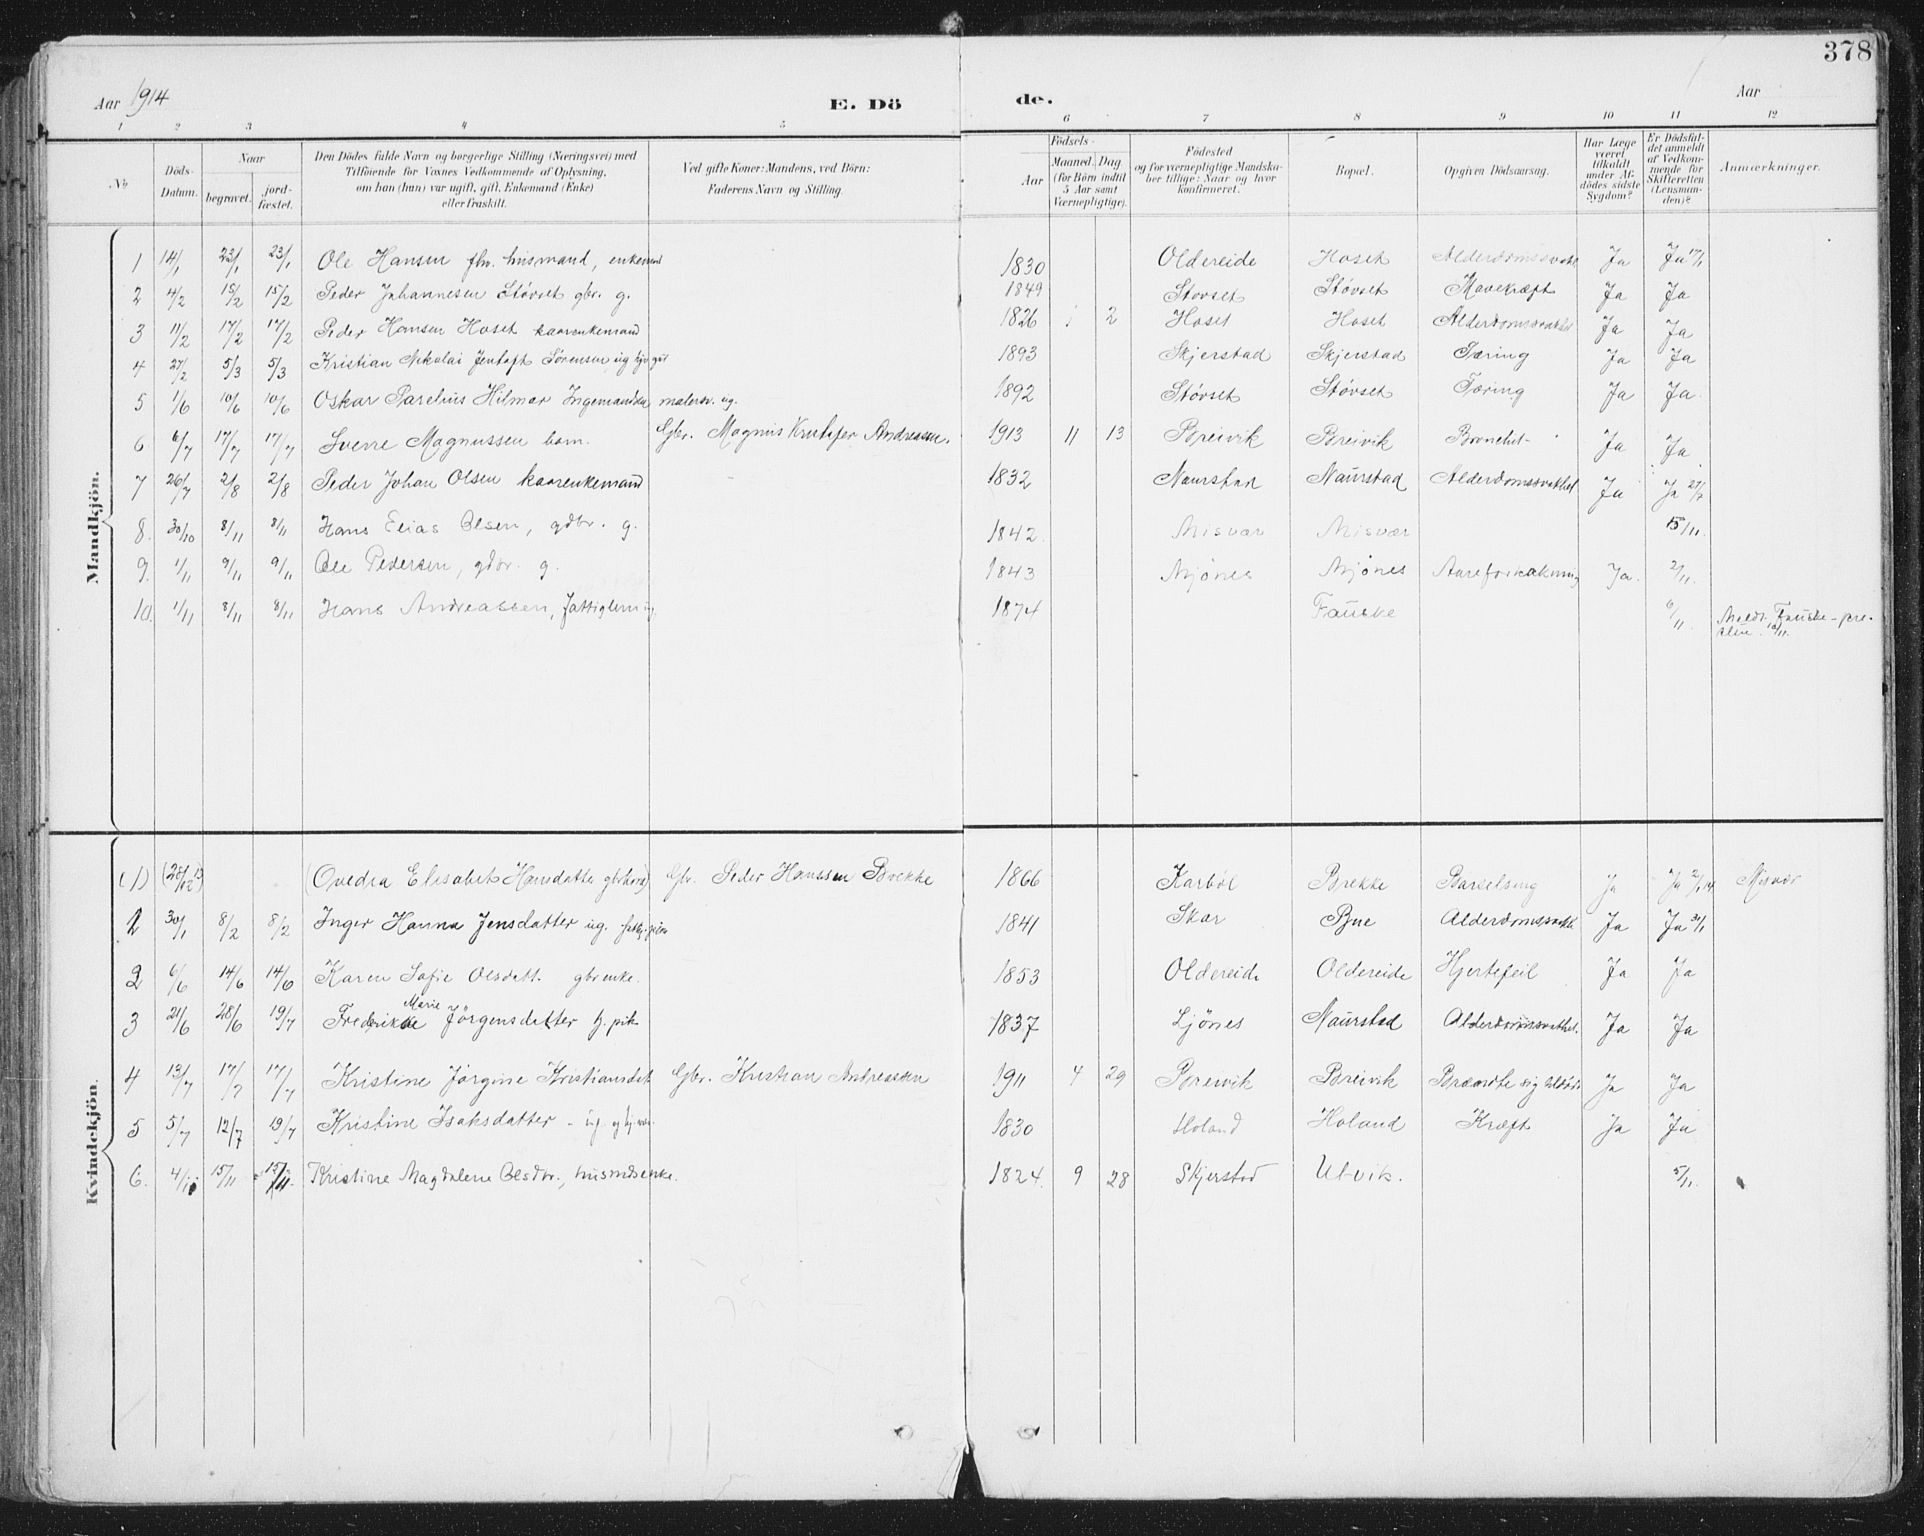 378
Aar 1914 E. Dö de. Aar
1 2 3 4 5 6 7 8 9 10 11 12
No Döds-Datum. Naar begravet. jord-fæstet. Den Dödes fulde Navn og borgerlige Stilling (Næringsvei) med Tilföiende for Voxnes Vedkommende af Oplysning, om han (hun) var ugift, gift, Enkemand (Enke) eller fraskilt. Ved gifte Koner: Mandens, ved Börn: Faderens Navn og Stilling. Födsels- Aar Maaned. Dag (for Börn indtil 5 Aar samt Værnepligtige). Födested og for værnepligtige Mandskaber tillige: Naar og hvor konfirmeret. Bopæl. Opgiven Dödsaarsag. Har Læge været tilkaldt under Afdödes sidste Sygdom? Er Dödsfaldet anmeldt af Vedkommende for Skifteretten (Lensmanden)? Anmærkninger.
Mandkjön.
1 14/1 23/1 23/1 Ole Hansen fhv. husmand, enkemand 1830 Oldereide Hoset Alderdomssvakh Ja Ja 17/1
2 4/2 15/2 15/2 Peder Johannesen Störset gbr. g. 1849 Störset Störset Mavekræft Ja Ja
3 11/2 17/2 17/2 Peder Hansen Hoset kaarenkemand 1826 1 2 Hoset Hoset Alderdomssvakhet Ja Ja
4 27/2 5/3 5/3 Kristian Nikolai Jentoft Sörensen ug 1893 Skjerstad Skjerstad Tæring Ja Ja
5 1/6 10/6 10/6 Oskar Parelius Hilmar Ingemundsen malersv. ug. 1892 Störset Störset Tæring Ja Ja
6 6/7 17/7 17/7 Sverre Magnussen barn. Gbr. Magnus Kristofer Andreassen. 1913 11 13 Breivik Breivik Ja Ja
7 26/7 2/8 2/8 Peder Johan Olsen kaarenkemand 1832 Naurstad Naurstad Alderdomssvakhet Ja Ja 27/7
8. 30/10 8/11 8/11 Hans Elias Olsen, gdbr. g. 1842. Misvær Misvær 15/11.
9. 1/11 9/11 9/11 Ole Pedersen, gdbr. g. 1843 Mjönes Mjönes Aareforkalkning Ja. 2/11.
10. 1/11 8/11 8/11 Hans Andreassen, fattiglem ug 1874 Fauske 6/11. Meldt Fauske-pre-
Kvindekjön.
(1) (28/12 13) (Ovedia Elisabet Hansdatter gbrkone) Gbr. Peder Hanssen Brekke 1866 Karböl Brekke Barselseng Ja Ja 2/1 14 Misvær
1 30/1 8/2 8/2 Inger Hanna Jensdatter ug. 1841 Skar Bue Alderdomssvakh. Ja Ja 31/1
2 6/6 14/6 14/6 Karen Sofie Olsdatt. gbr enke. 1853 Oldereide Oldereide Hjertefeil Ja Ja
3 21/6 28/6 19/7 Fredrikke Marie Jörgensdatter tj. pik 1837 Ljönes Naurstad Alderdomssvakhet. Ja Ja
4 13/7 17/7 17/7 Kristine Jörgine Kristiansdat Gbr. Kristian Andreassen 1911 4 29 Breivik Breivik Brændte sig Ja Ja
5 5/7 12/7 19/7 Kristine Isaksdatter - ug. 1830 Holand Holand Kræft Ja Ja
6. 4/11 15/11 15/11. Kristine Magdalene Olsdtr., husmdsenke. 1824. 9 28 Skjerstad Ulvik. 5/11.